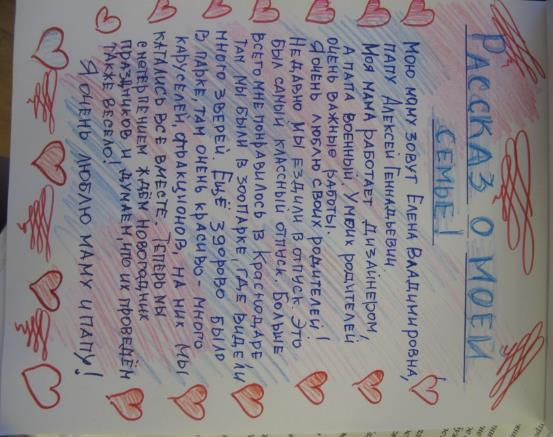 РАССКАЗ О МОЕЙ
СЕМЬЕ!
Мою маму зовут Елена Владимировна,
папу Алексей Геннадьевич
Моя мама работает дизайнером,
а папа военный. У моих родителей
очень важные работы.
Я очень люблю своих родителей!
Недавно мы ездили в отпуск. Это
был самый классный отпуск. Больше
всего мне понравилось в Краснодаре
там мы были в зоопарке, где видели
много зверей. Ещё здорово было
в парке, там очень красиво - много
каруселей, атракционов, на них мы
катались все вместе. Теперь мы
с нетерпением ждём новогодних
праздников и думаем, что их проведём
также весело!
Я очень люблю маму и папу!